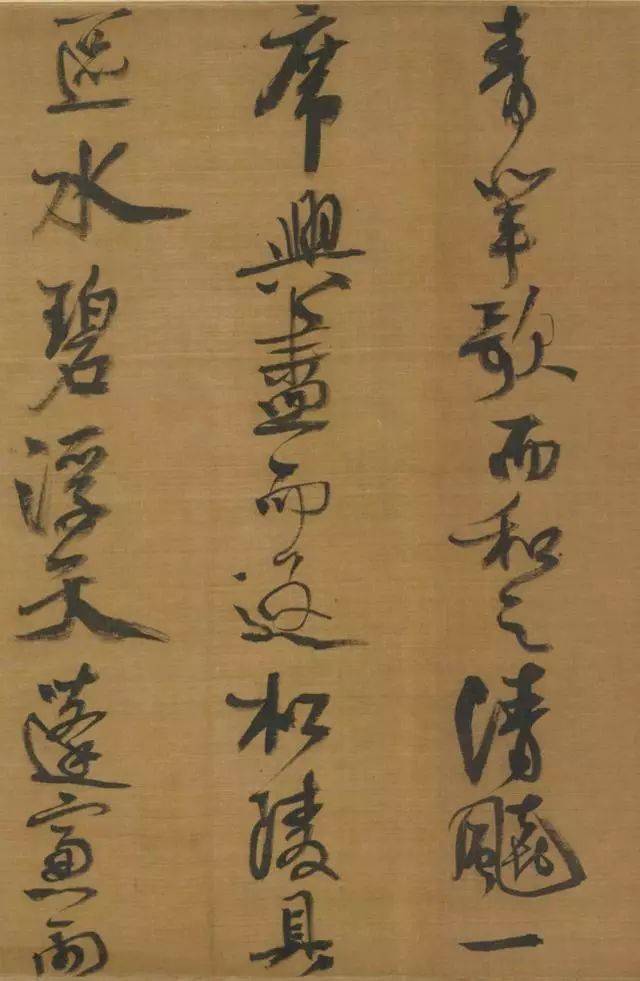 青歌而和之清飈一
席興盡而返松陵具
區水碧浮天蓬窻雨